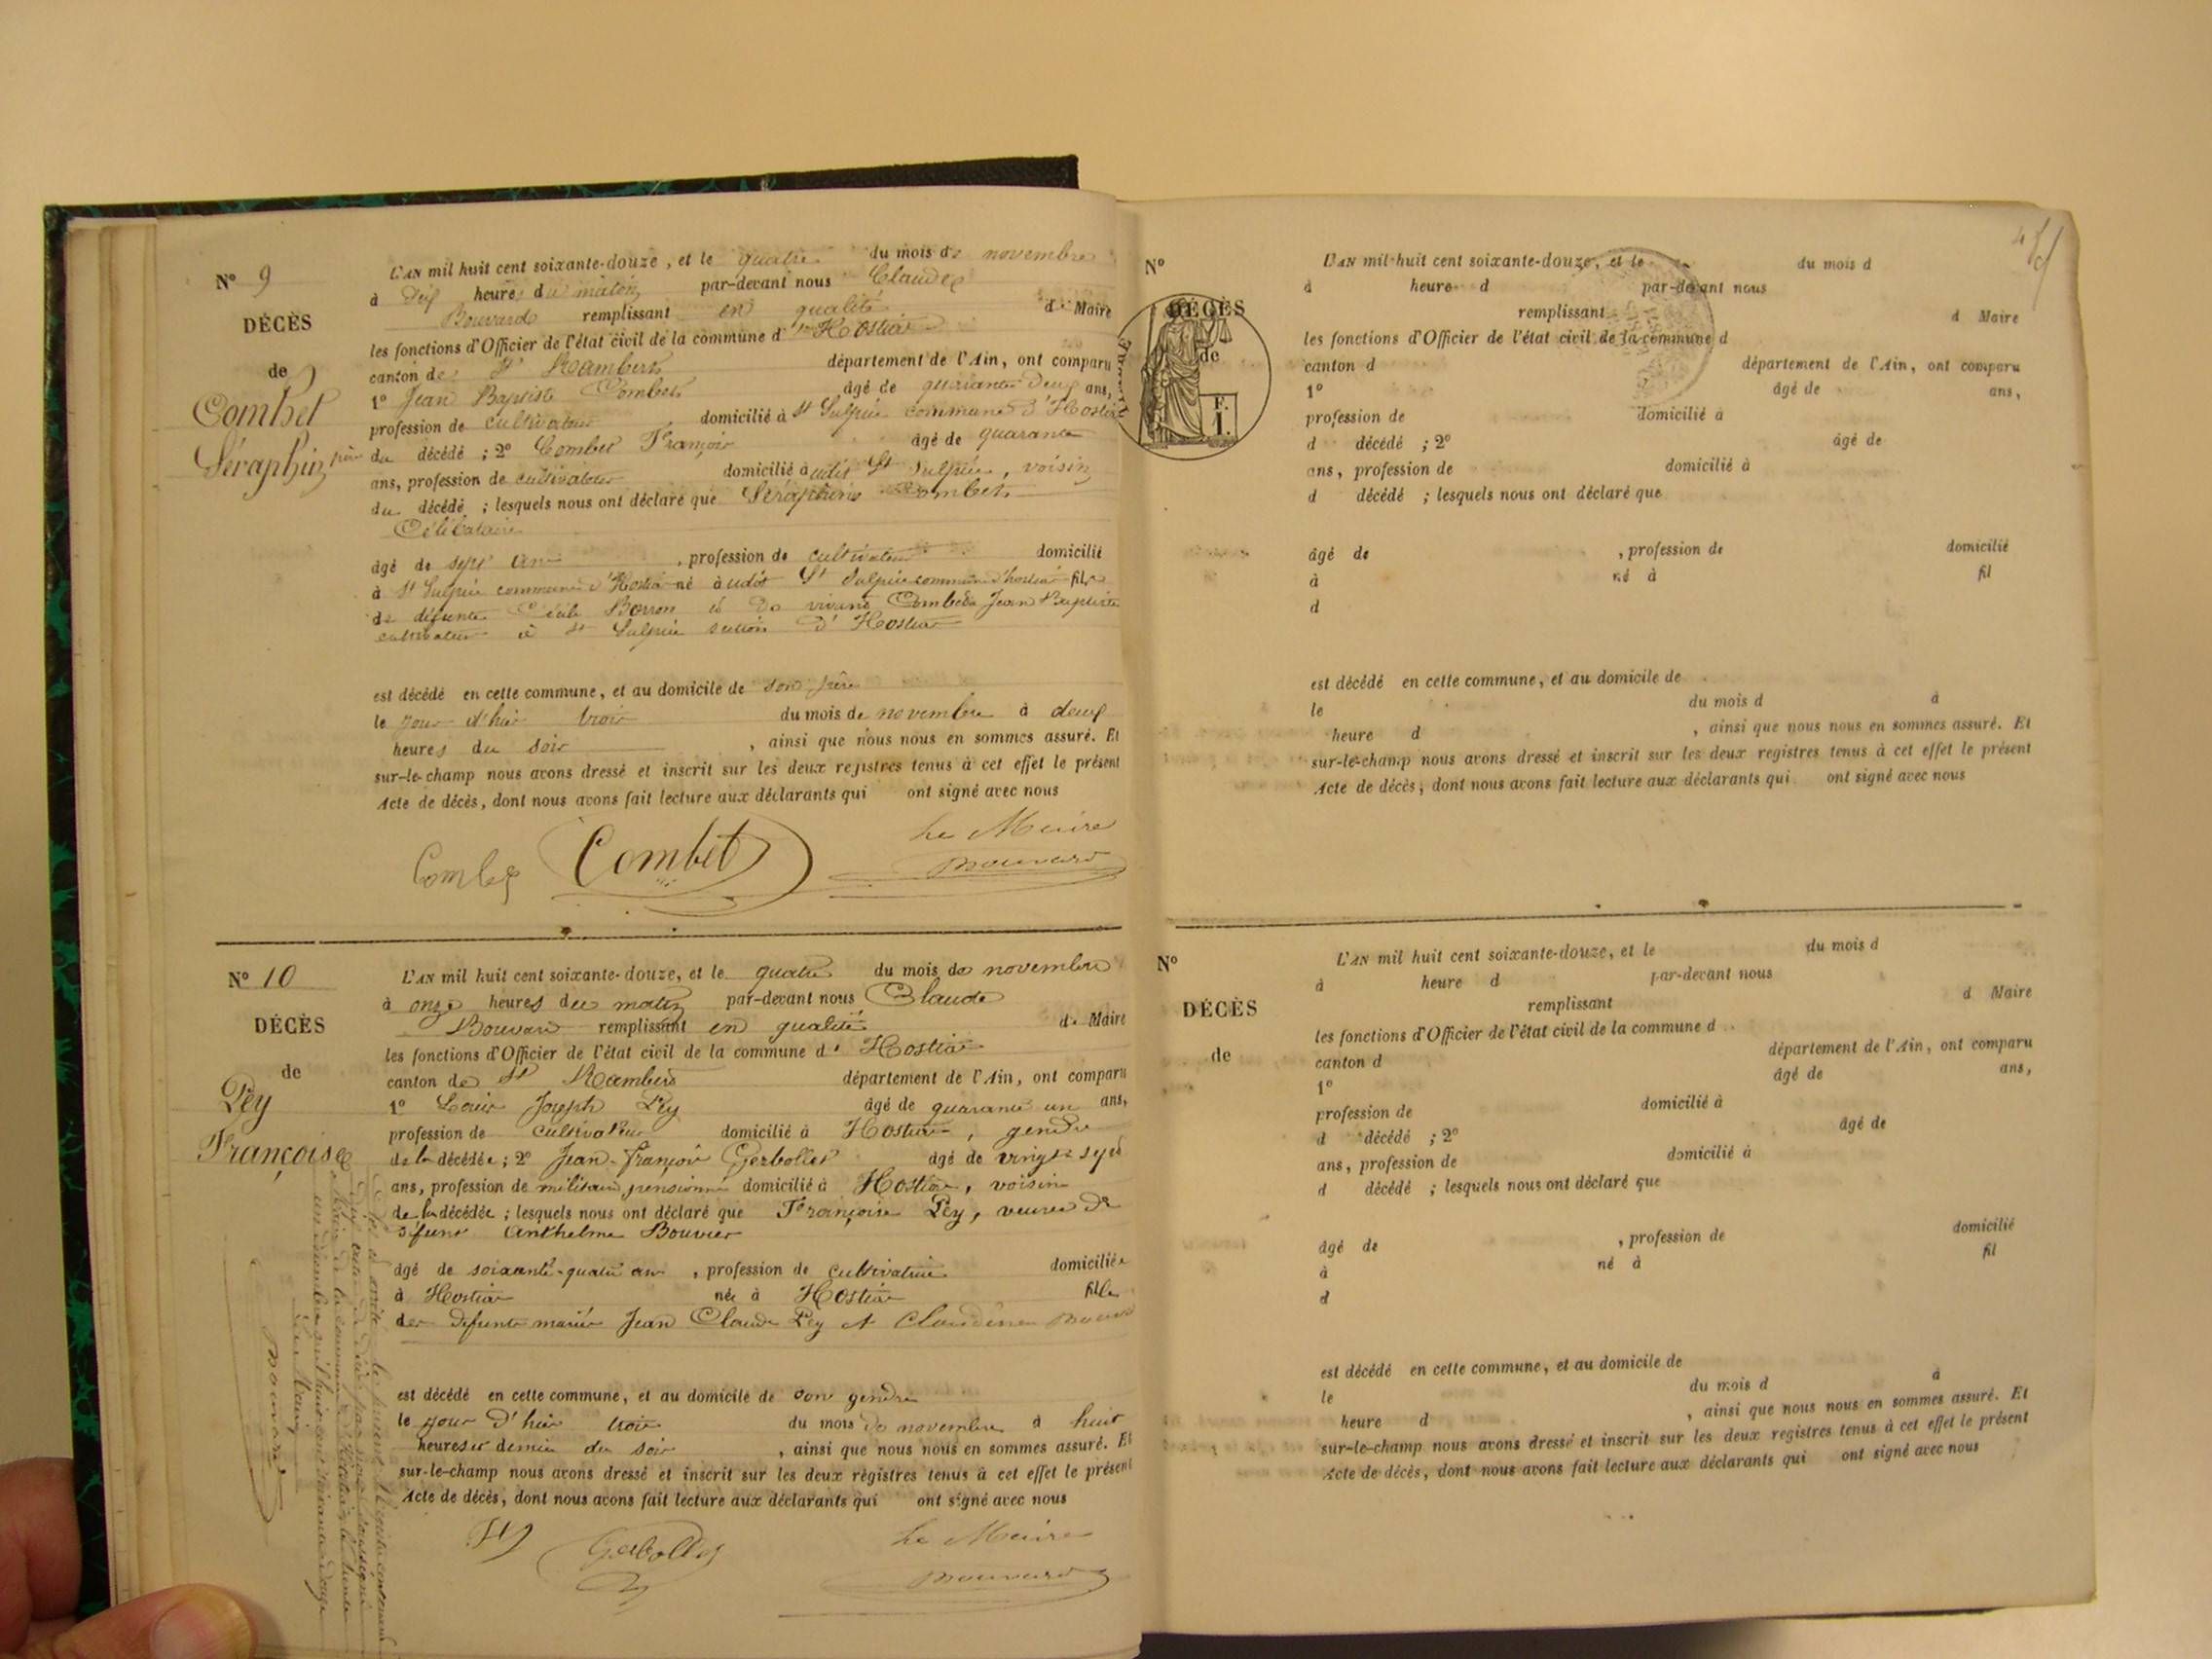 N° 9
DÉCÈS
de
Combet
Séraphin
L'AN mil huit cent soixante-douze, et le quatre du mois de novembre
à dix heures du matin par-devant nous Claude
Bouvard remplissant en qualité de Maire
les fonctions d'Officier de l'état civil de la commune d'Hostia
canton de St Rambert département de l'Ain, ont comparu
1° Jean Baptiste Combet âgé de quarante deux ans,
profession de cultivateur domicilié à St Sulpice commune d'Hostia
père du décédé ; 2° Combet François âgé de quarante
ans, profession de cultivateur domicilié à udit St Sulpice, voisin
du décédé ; lesquels nous ont déclaré que Séraphin Combet
Célibataire
âgé de sept ans, profession de cultivateur domicilié
à St Sulpice commune d'Hostia né à udit St Sulpice commune d'hostia fils
de défunte Cécile Borron et de vivant Combet Jean Baptiste
cultivateur à St Sulpice section d'Hostia
est décédé en cette commune, et au domicile de son père
le jour d'hier trois du mois de novembre à deux
heures du soir, ainsi que nous nous en sommes assuré. Et
sur-le-champ nous avons dressé et inscrit sur les deux registres tenus à cet effet le présent
Acte de décès, dont nous avons fait lecture aux déclarants qui ont signé avec nous
Le Maire
Combet Combet Bouvard
N° 10
DÉCÈS
de
Pey
Françoise
L'AN mil huit cent soixante-douze, et le quatre du mois de novembre
à onze heures du matin par-devant nous Claude
Bouvard remplissant en qualité de Maire
les fonctions d'Officier de l'état civil de la commune d'Hostia
canton de St Rambert département de l'Ain, ont comparu
1° Louis Joseph Pey âgé de quarante un ans,
profession de cultivateur domicilié à Hostia, gendre
de la décédée ; 2° Jean-françois Gerbollet âgé de vingt sept
ans, profession de militaire pensionné domicilié à Hostia, voisin
de la décédée ; lesquels nous ont déclaré que Françoise Pey, veuve de
défunt Anthelme Bouvier
âgé de soixante-quatre ans, profession de cultivatrice domiciliée
à Hostia née à Hostia fille
des défunts mariés Jean Claude Pey et Claudine
est décédé en cette commune, et au domicile de son gendre
le jour d'hier trois du mois de novembre à huit
heures et demie du soir, ainsi que nous nous en sommes assuré. Et
sur-le-champ nous avons dressé et inscrit sur les deux registres tenus à cet effet le présent
Acte de décès, dont nous avons fait lecture aux déclarants qui ont signé avec nous
Le Maire
Gerbollet Bouvard
Clos et arrêté le présent Registre contenant
dix actes de décès par nous soussigné
Maire de la commune d'Hostia le trente
un décembre mil huit cent soixante douze
Le Maire
Bouvard
N°
DÉCÈS
de
F.
1.
L'AN mil huit cent soixante-douze, et le du mois d
à heure d par-devant nous
remplissant d Maire
les fonctions d'Officier de l'état civil de la commune d
canton d département de l'Ain, ont comparu
1° âgé de ans,
profession de domicilié à
d décédé ; 2° âgé de
ans, profession de domicilié à
d décédé ; lesquels nous ont déclaré que
âgé de , profession de domicilié
à né à fil
d
est décédé en cette commune, et au domicile de
le du mois d à
heure d , ainsi que nous nous en sommes assuré. Et
sur-le-champ nous avons dressé et inscrit sur les deux registres tenus à cet effet le présent
Acte de décès, dont nous avons fait lecture aux déclarants qui ont signé avec nous
N°
DÉCÈS
de
L'AN mil huit cent soixante-douze, et le du mois d
à heure d par-devant nous
remplissant d Maire
les fonctions d'Officier de l'état civil de la commune d
canton d département de l'Ain, ont comparu
1° âgé de ans,
profession de domicilié à
d décédé ; 2° âgé de
ans, profession de domicilié à
d décédé ; lesquels nous ont déclaré que
âgé de , profession de domicilié
à né à fil
d
est décédé en cette commune, et au domicile de
le du mois d à
heure d , ainsi que nous nous en sommes assuré. Et
sur-le-champ nous avons dressé et inscrit sur les deux registres tenus à cet effet le présent
Acte de décès, dont nous avons fait lecture aux déclarants qui ont signé avec nous